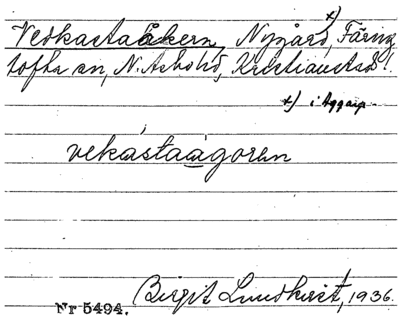 Vedkastaåkern, Nygård, x)
Färing
tofta sn, N. Åsbo hd, Kristianstads l.
x) i Aggarp
vekástaågoren
Birgit Lundkvist, 1936.
Nr 5494.